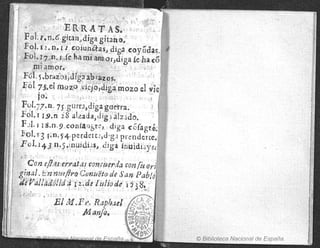 ERRATAS.
Fol. 1. n. 6. gitan, diga gitano.
Fol. 12. n. 12 coiunctas, diga coyūdas.
Fol. 27. n. 1. se ha mi amor, diga se ha cō
mi amor.
Fol. 5. brazos, diga abrazos.
Fol 75. el mozo viejo, diga mozo el vie
jo.
Fol. 77. n. 75 gurra, diga guerra.
Fol. 119. n. 28 alzada, diga alzado.
diga cōsagrē.
Fol. n. 54. perderte, diga prenderte.
Fol. 143 n. 5. inuidias, diga inuidia
Con estas erratas concuerda con su ori
ginal. En nuestro Conuēto de San Pablo
de Valladolid à 12. de Iulio de 1638.
El M. Fr. Raphael
Manso.
Biblioteca Nacional de España
© Biblioteca Nacional de España